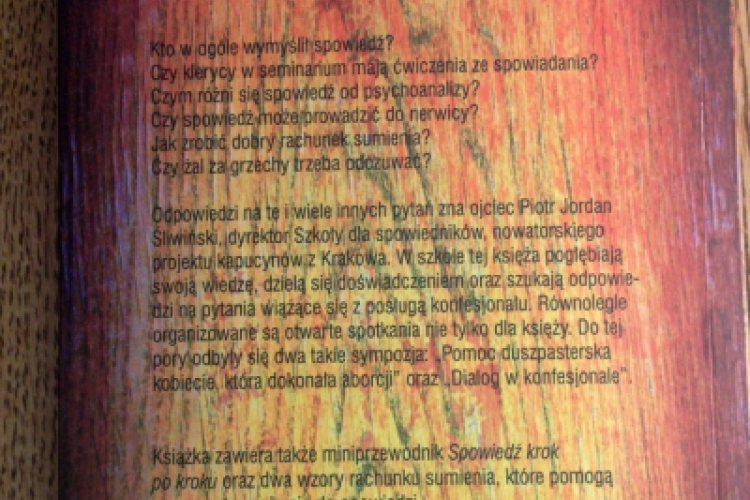 Kto w ogóle wymyślił spowiedź?
Czy klerycy w seminarium mają ćwiczenia ze spowiadania?
Czym różni się spowiedź od psychoanalizy?
Czy spowiedź może prowadzić do nerwicy?
Jak zrobić dobry rachunek sumienia?
Czy żal za grzechy trzeba odczuwać?
Odpowiedzi na te i wiele innych pytań zna ojciec Piotr Jordan
Śliwiński, dyrektor Szkoły dla spowiedników, nowatorskiego
projektu kapucynów z Krakowa. W szkole tej księża pogłębiają
swoją wiedzę, dzielą się doświadczeniem oraz szukają odpowie-
dzi na pytania wiążące się z posługą konfesjonału. Równolegle
organizowane są otwarte spotkania nie tylko dla księży. Do tej
pory odbyły się dwa takie sympozja: „Pomoc duszpasterska
kobiecie, która dokonała aborcji” oraz „Dialog w konfesjonale”.
Książka zawiera także miniprzewodnik Spowiedź krok
po kroku oraz dwa wzory rachunku sumienia, które pomogą
do spowiedzi